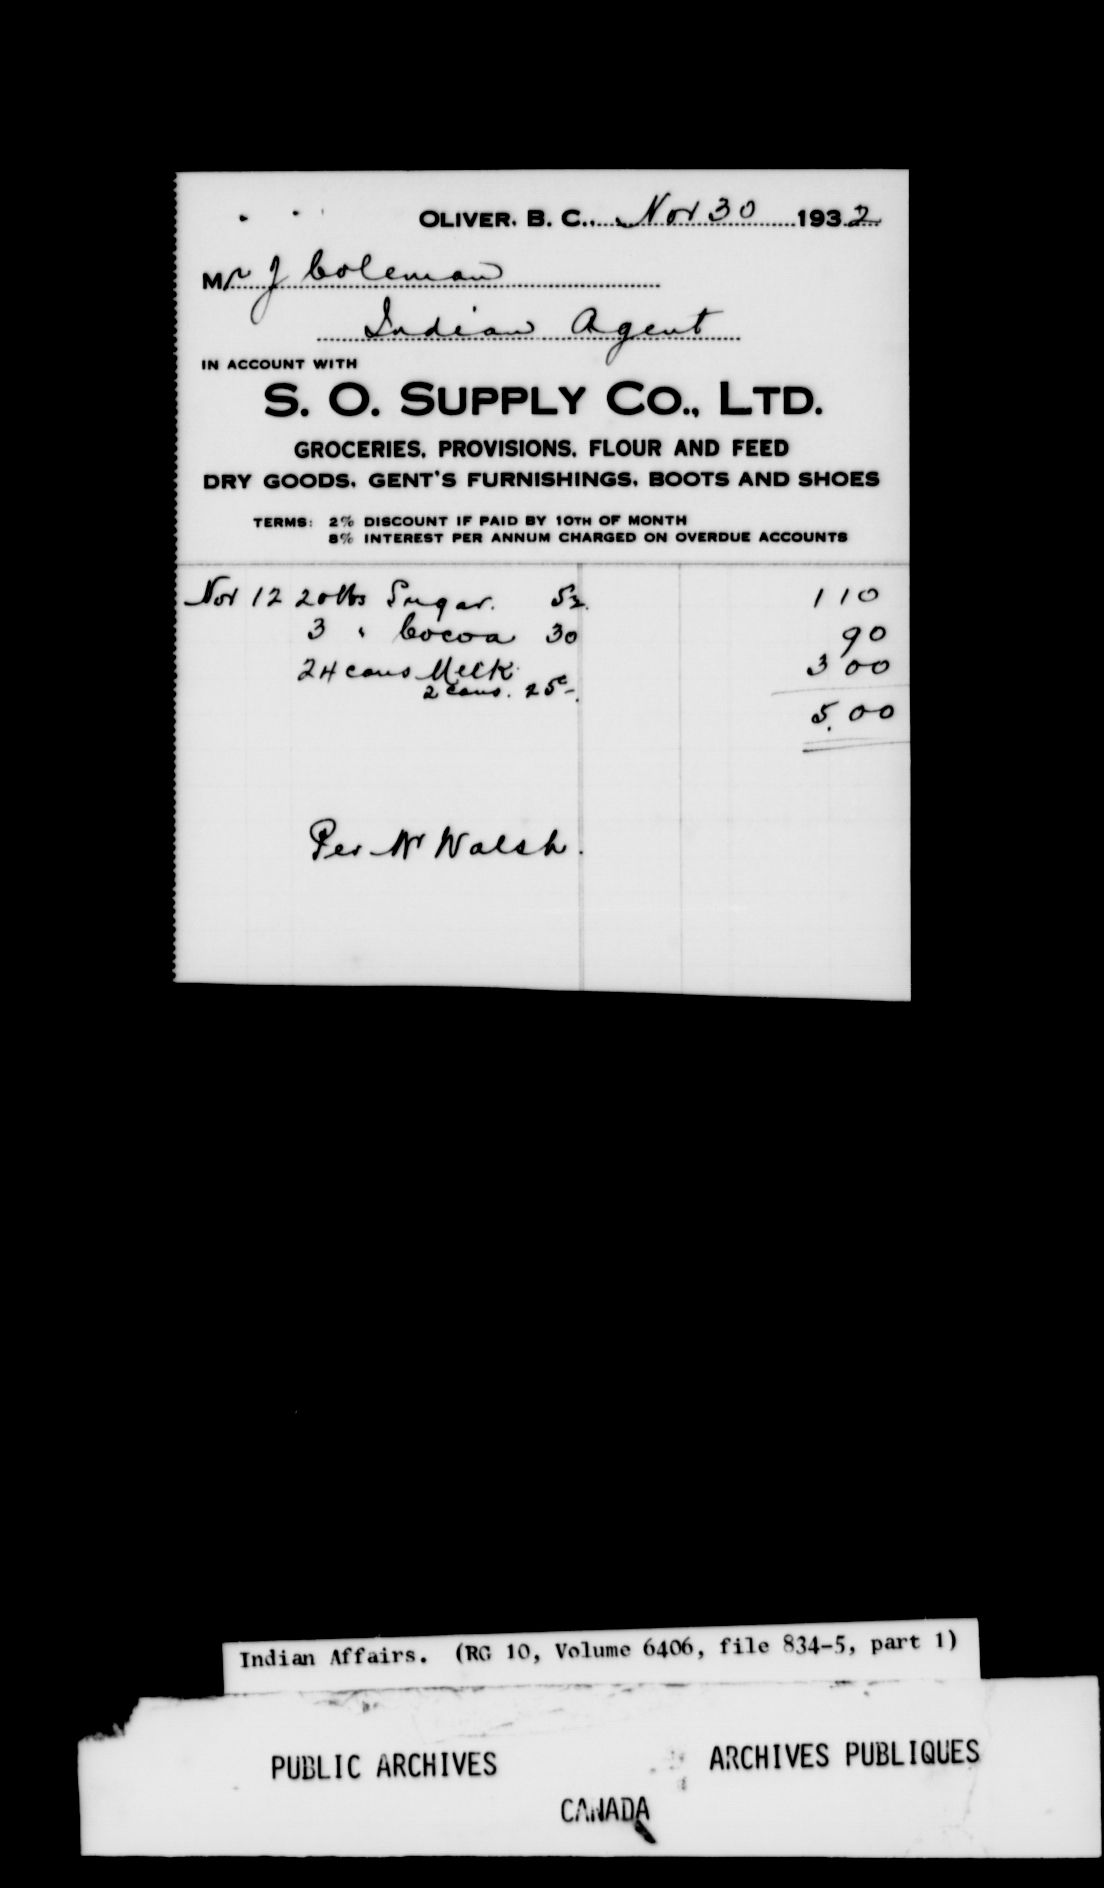 OLIVER, B. C., Nov 30 1932
Mr J Coleman
Indian Agent
IN ACCOUNT WITH
S. O. SUPPLY CO., LTD.
GROCERIES, PROVISIONS, FLOUR AND FEED
DRY GOODS, GENT'S FURNISHINGS, BOOTS AND SHOES
TERMS: 2% DISCOUNT IF PAID BY 10TH OF MONTH
8% INTEREST PER ANNUM CHARGED ON OVERDUE ACCOUNTS
Nov 12 20 lbs Sugar. 5½ 1 10
3 " Cocoa 30 90
24 cans Milk 3 00
2 cans. 25¢
5.00
Per W Walsh.
Indian Affairs. (RG 10, Volume 6406, file 834-5, part 1)
PUBLIC ARCHIVES ARCHIVES PUBLIQUES
CANADA